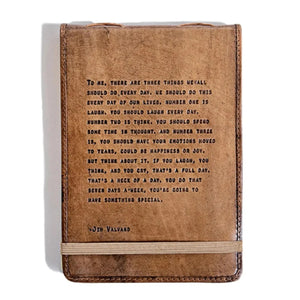 To me, there are three things we all
should do every day. We should do this
every day of our lives. Number one is
laugh. You should laugh every day.
Number two is think. You should spend
some time in thought. And number three
is, you should have your emotions moved
to tears, could be happiness or joy.
But think about it. If you laugh, you
think, and you cry, that's a full day.
That's a heck of a day. You do that
seven days a week, you're going to
have something special.
-Jim Valvano